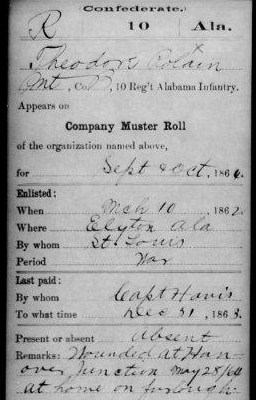 Confederate.
R 10 Ala.
Theodore
Co. , 10 Reg't Alabama Infantry.
Appears on
Company Muster Roll
of the organization named above,
for Sept & Oct, 1864.
Enlisted:
When Mch 10, 1862.
Where Elyton Ala
By whom St. Louis
Period War
Last paid:
By whom Capt
To what time Dec 31, 1863.
Present or absent Absent
Remarks: Wounded at Han-
over Junction May 28/64
at home on furlough